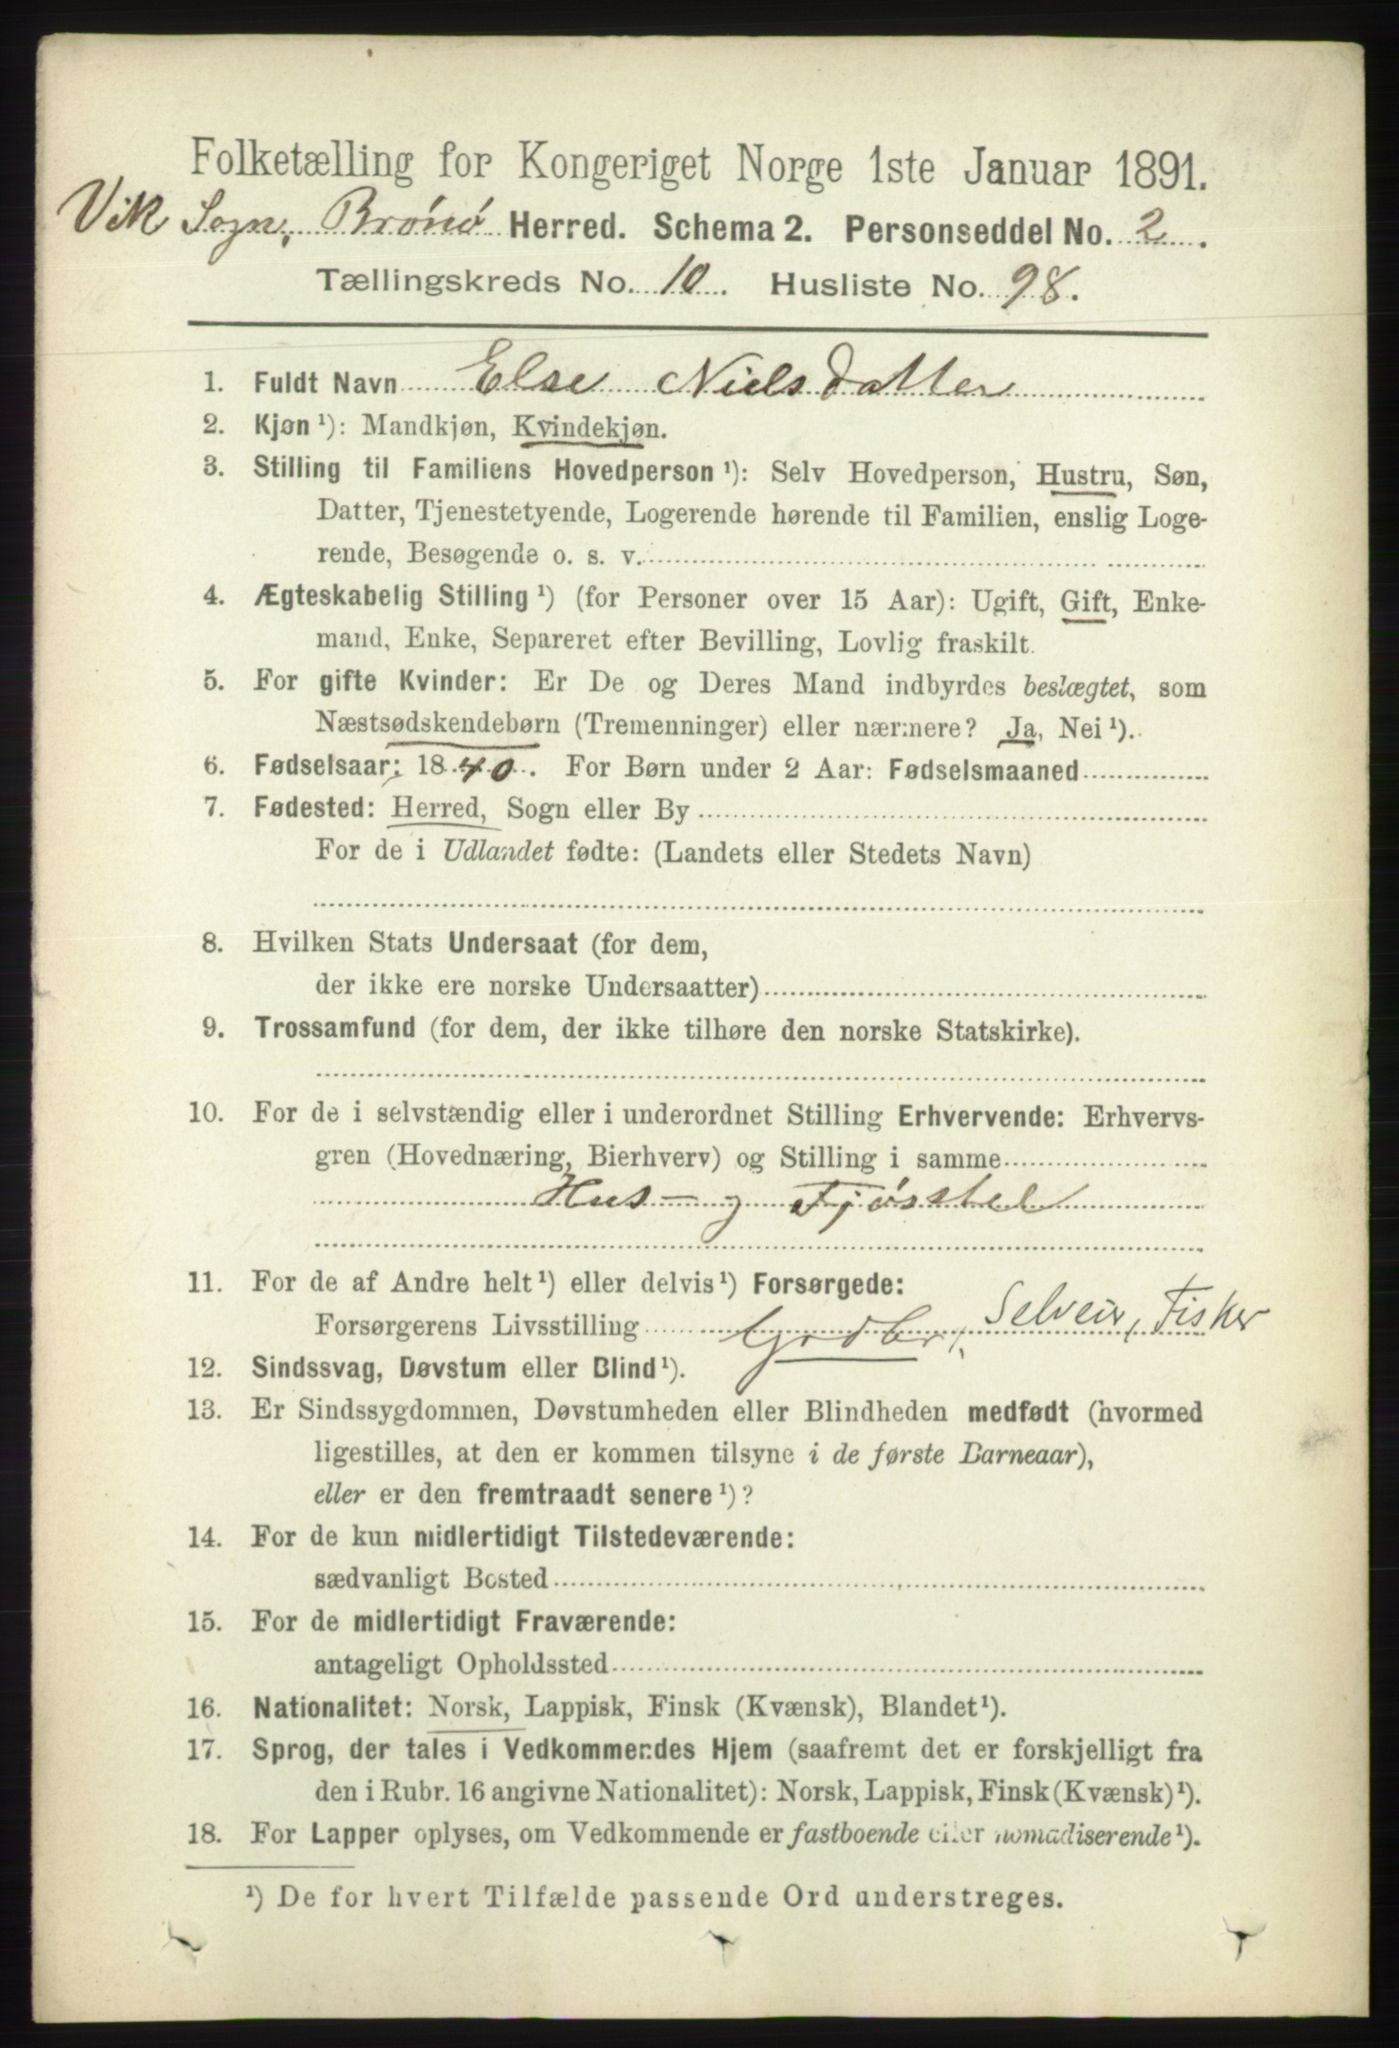 Folketælling for Kongeriget Norge 1ste Januar 1891.
Vik Sogn, Brönö Herred. Schema 2. Personseddel No. 2.
Tællingskreds No. 10. Husliste No. 98.
1. Fuldt Navn Else Nielsdatter
2. Kjøn ¹): Mandkjøn, Kvindekjøn.
3. Stilling til Familiens Hovedperson ¹): Selv Hovedperson, Hustru, Søn,
Datter, Tjenestetyende, Logerende hørende til Familien, enslig Loge-
rende, Besøgende o. s. v.
4. Ægteskabelig Stilling ¹) (for Personer over 15 Aar): Ugift, Gift, Enke-
mand, Enke, Separeret efter Bevilling, Lovlig fraskilt.
5. For gifte Kvinder: Er De og Deres Mand indbyrdes beslægtet, som
Næstsødskendebørn (Tremenninger) eller nærmere? Ja, Nei ¹).
6. Fødselsaar: 1840. For Børn under 2 Aar: Fødselsmaaned
7. Fødested: Herred, Sogn eller By
For de i Udlandet fødte: (Landets eller Stedets Navn)
8. Hvilken Stats Undersaat (for dem,
der ikke ere norske Undersaatter)
9. Trossamfund (for dem, der ikke tilhøre den norske Statskirke).
10. For de i selvstændig eller i underordnet Stilling Erhvervende: Erhvervs-
gren (Hovednæring, Bierhverv) og Stilling i samme
Hus- og Fjøsstel
11. For de af Andre helt ¹) eller delvis ¹) Forsørgede:
Forsørgerens Livsstilling Grdbr, Selveier, Fisker
12. Sindssvag, Døvstum eller Blind ¹).
13. Er Sindssygdommen, Døvstumheden eller Blindheden medfødt (hvormed
ligestilles, at den er kommen tilsyne i de første Barneaar),
eller er den fremtraadt senere ¹)?
14. For de kun midlertidigt Tilstedeværende:
sædvanligt Bosted
15. For de midlertidigt Fraværende:
antageligt Opholdssted
16. Nationalitet: Norsk, Lappisk, Finsk (Kvænsk), Blandet ¹).
17. Sprog, der tales i Vedkommendes Hjem (saafremt det er forskjelligt fra
den i Rubr. 16 angivne Nationalitet): Norsk, Lappisk, Finsk (Kvænsk) ¹).
18. For Lapper oplyses, om Vedkommende er fastboende eller nomadiserende ¹).
¹) De for hvert Tilfælde passende Ord understreges.